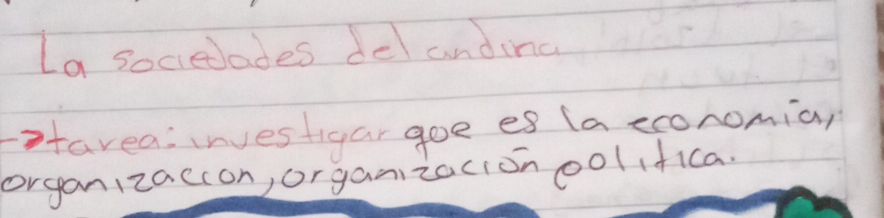 La sociedades del andina
→tarea: investigar qoe es la economia,
organizacion, organización politica.